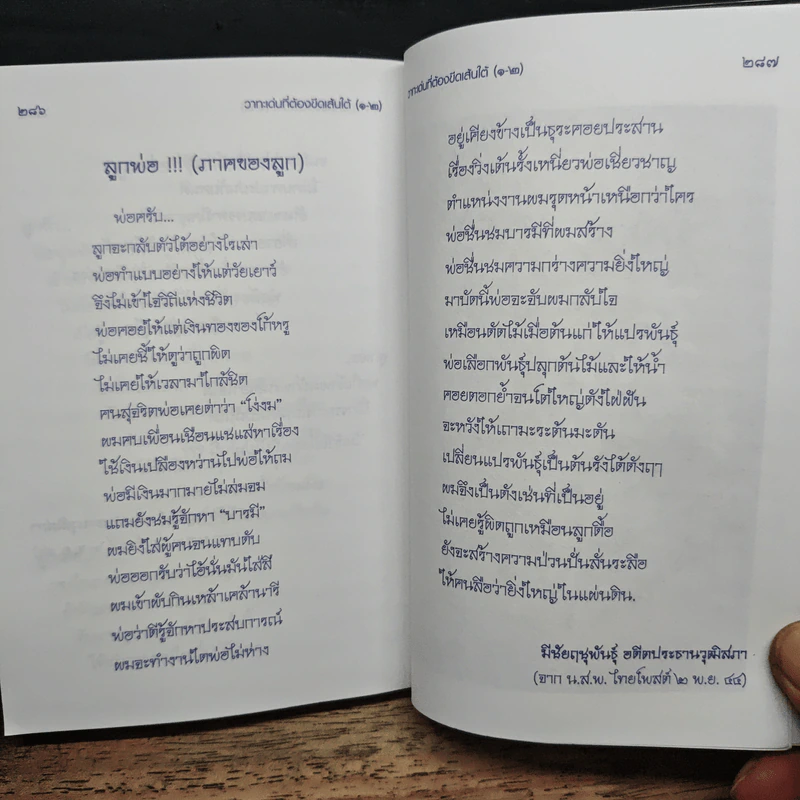 ๒๘๖
วาทะเด่นที่ต้องขีดเส้นใต้ (๑-๒)
ลูกพ่อ !!! (ภาคของลูก)
พ่อครับ...
ลูกจะกลับตัวได้อย่างไรเล่า
พ่อทำแบบอย่างให้แต่วัยเยาว์
จึงไม่เข้าใจวิถีแห่งชีวิต
พ่อคอยให้แต่เงินทองของโก้หรู
ไม่เคยชี้ให้ดูว่าถูกผิด
ไม่เคยให้เวลามาใกล้ชิด
คนสุจริตพ่อเคยด่าว่า "โง่งม"
ผมคบเพื่อนเชือนแชแส่หาเรื่อง
ใช้เงินเปลืองหว่านไปพ่อให้ถม
พ่อมีเงินมากมายไม่ล่มจม
แถมยังชมรู้จักหา "บารมี"
ผมยิงใส่ผู้คนจนแทบดับ
พ่อออกรับว่าไอ้นั่นมันใส่สี
ผมเข้าผับกินเหล้าเคล้านารี
พ่อว่าดีรู้จักหาประสบการณ์
ผมจะทำงานใดพ่อไม่ห่าง
วาทะเด่นที่ต้องขีดเส้นใต้ (๑-๒)
๒๘๗
อยู่เคียงข้างเป็นธุระคอยประสาน
เรื่องวิ่งเต้นรั้งเหนี่ยวพ่อเชี่ยวชาญ
ตำแหน่งงานผมรุดหน้าเหนือกว่าใคร
พ่อชื่นชมบารมีที่ผมสร้าง
พ่อชื่นชมความกร่างความยิ่งใหญ่
มาบัดนี้พ่อจะจับผมกลับใจ
เหมือนดัดไม้เมื่อต้นแก่ให้แปรพันธุ์
พ่อเลือกพันธุ์ปลูกต้นไม้และให้น้ำ
คอยตอกย้ำจนโตใหญ่ดังใฝ่ฝัน
จะหวังให้เถามะระต้นมะตัน
เปลี่ยนแปรพันธุ์เป็นต้นรังได้ดังฤา
ผมจึงเป็นดังเช่นที่เป็นอยู่
ไม่เคยรู้ผิดถูกเหมือนลูกดื้อ
ยังจะสร้างความป่วนปั่นลั่นระลือ
ให้คนลือว่ายิ่งใหญ่ในแผ่นดิน.
มีชัยฤชุพันธุ์ อดีตประธานวุฒิสภา
(จาก น.ส.พ. ไทยโพสต์ ๒ พ.ย. ๔๔)